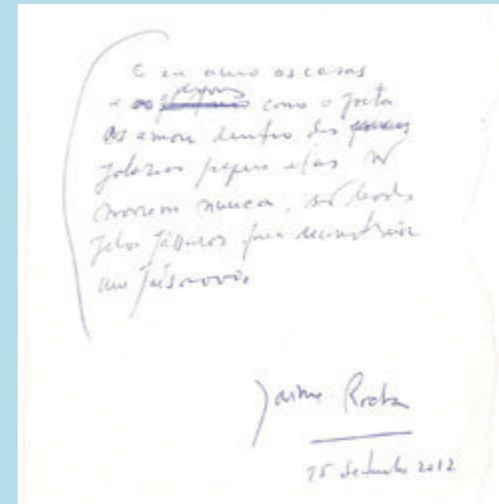 E eu amo as casas
e as como o poeta
as amou dentro das
palavras porque elas não
morrem nunca, são levadas
pelos pássaros para reconstruir
um país novo.
Jaime Rocha
15 Setembro 2012